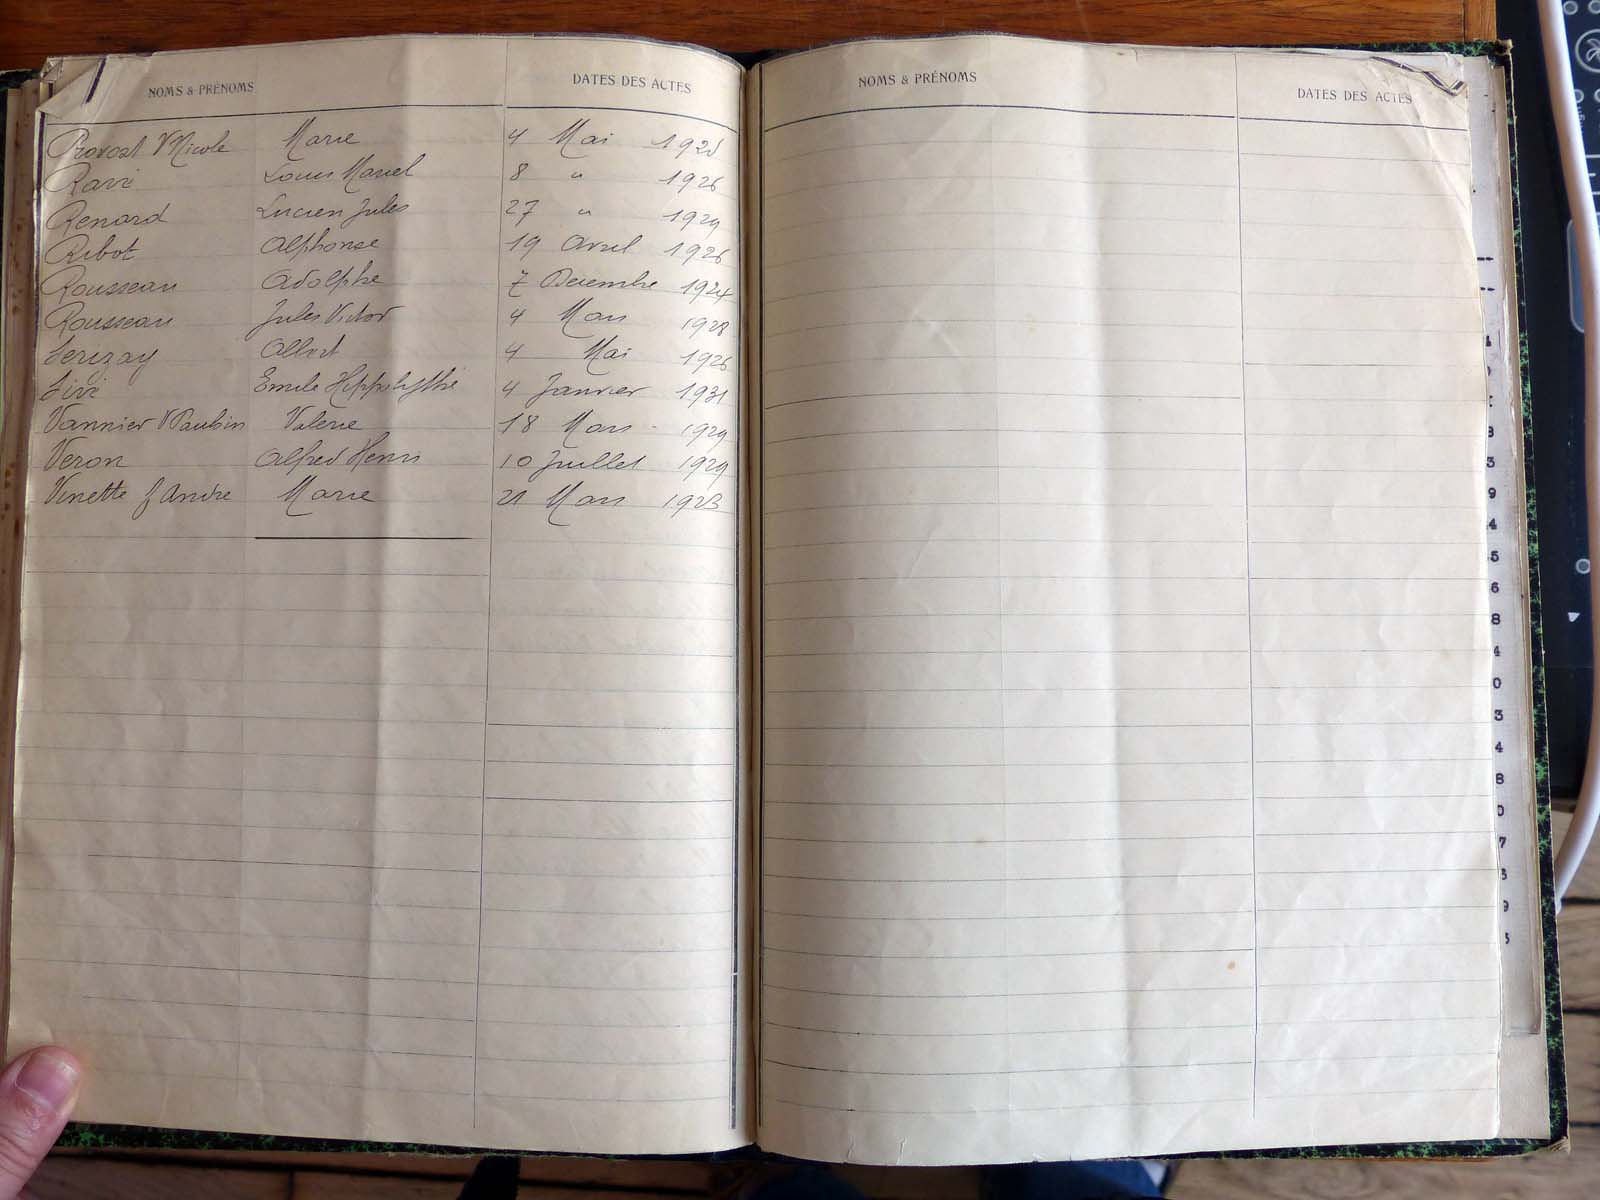 NOMS & PRÉNOMS DATES DES ACTES
Provost V Nicole Marie 4 Mai
Ravi Louis Marcel 8 " 1926
Renard Lucien Jules 27 " 1929
Ribot Alphonse 19 Avril 1926
Rousseau Adolphe 7 Décembre 1924
Rousseau Jules Victor 4 Mars 1928
Serizay Albert 4 Mai 1926
Sivi Emile Hippolythe 4 Janvier 1931
Vannier V Paubin Valerie 18 Mars 1929
Veron Alfred Henri 10 Juillet 1929
Vinette f André Marie 21 Mars 1923
NOMS & PRÉNOMS DATES DES ACTES